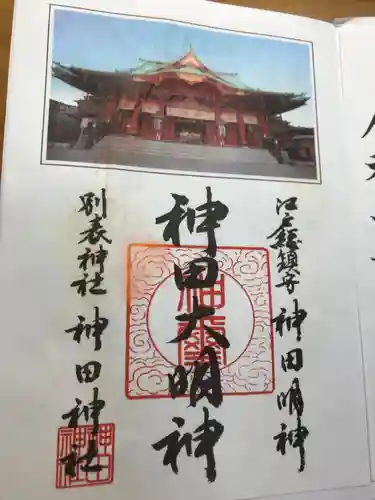 江戸総鎮守 神田明神
神田大明神
別表神社 神田神社
神田